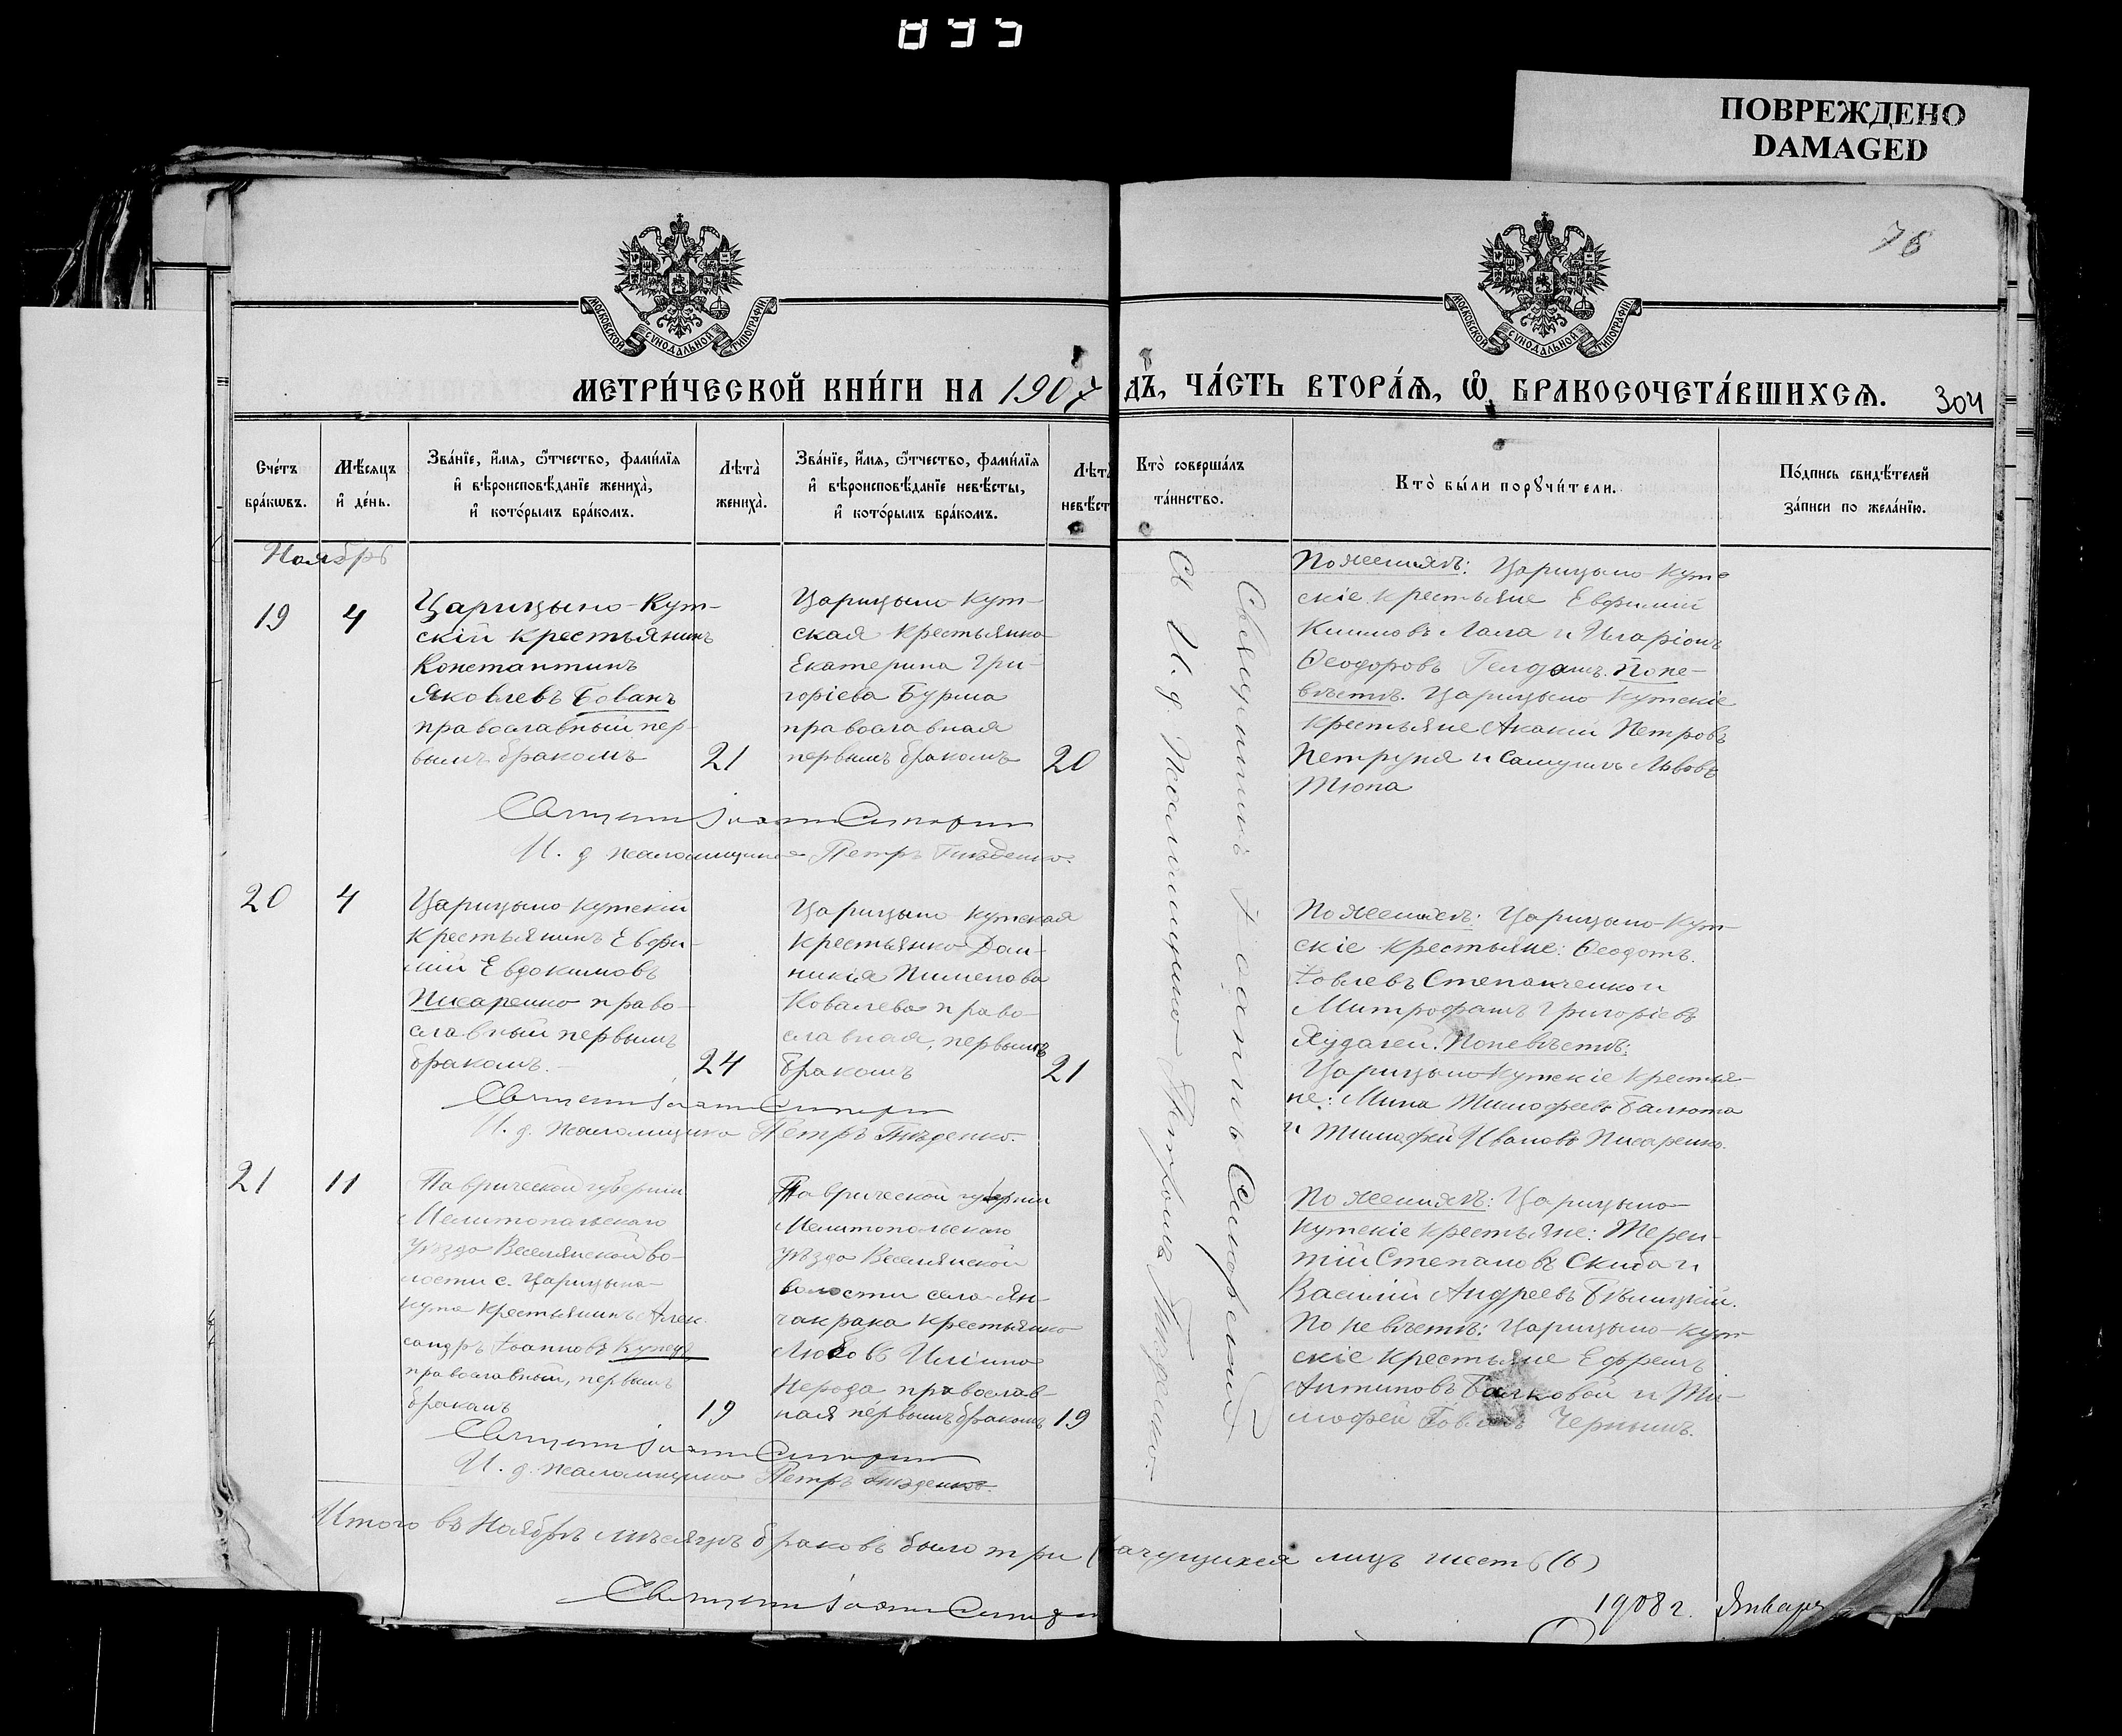 895
ПОВРЕЖДЕНО
DAMAGED
76
МОСКОВСКОЙ СѴНОДАЛЬНОЙ ТИПОГРАФІИ
МОСКОВСКОЙ СѴНОДАЛЬНОЙ ТИПОГРАФІИ
МЕТРИ́ЧЕСКОЙ КНИ́ГИ НА 1907
ДЪ, ЧА́СТЬ ВТОРА́Я, Ѽ БРАКОСОЧЕТА́ВШИХСЯ.
304
Сче́тъ бра́кѡвъ.
Мѣ́сяцъ и҆ де́нь.
Зва́нїе, и҆́мя, ѻ҆́тчество, фами́лїя и҆ вѣроисповѣ́данїе жениха̀, и҆ кото́рымъ бра́комъ.
Лѣта̀ жениха̀.
Зва́нїе, и҆́мя, ѻ҆́тчество, фами́лїя и҆ вѣроисповѣ́данїе невѣ́сты, и҆ кото́рымъ бра́комъ.
Лѣта̀ невѣст
Кто̀ соверша́лъ та́инство.
Кто̀ бы́ли порꙋчи́тели.
По́дпись свидѣ́телей за́писи по жела́нїю.
Ноябрь
19
4
Царицыно-Кут-
скій крестьянинъ
Константинъ
Яковлевъ Бованъ
православный пер-
вымъ бракомъ
21
Царицыно Кут-
ская крестьянка
Екатерина Гри-
горіева Бурма
православная
первымъ бракомъ
20
Священникъ Іоаннъ
И. д. псаломщика Петръ Гнѣденко.
По женихѣ: Царицыно Кут-
скіе крестьяне Евфимій
Климовъ Лата и Иларіонъ
Ѳеодоровъ По не-
вѣстѣ. Царицыно Кутскіе
крестьяне Акакій Петровъ
Петруня и Самуилъ Львовъ
Тюпа
Священникъ Іоаннъ
Съ И. д. Псаломщика Петромъ Гнѣденко.
20
4
Царицыно Кутскій
крестьянинъ Евфи-
мій Евдокимовъ
Писаренко право-
славный первымъ
бракомъ.
24
Царицыно Кутская
крестьянка Дом-
никія Пименова
Ковалева право-
славная, первымъ
бракомъ
21
Священникъ Іоаннъ
И. д. псаломщика Петръ Гнѣденко.
По женихѣ: Царицыно-Кут-
скіе крестьяне: Ѳеодотъ
Іовлевъ Степанченко и
Митрофанъ Григоріевъ
Худолей. По невѣстѣ:
Царицыно Кутскіе крестья-
не: Мина Тимофеевъ Балюта
и Тимофей Ивановъ Писаренко.
21
11
Таврической губерніи
Мелитопольскаго
уѣзда Веселянской во-
лости с. Царицына-
Кута крестьянинъ Алек-
сандръ Іоанновъ Купецъ
православный, первымъ
бракомъ
19
Таврической губерніи
Мелитопольскаго
уѣзда Веселянской
волости села Ян-
чакрака крестьянка
Любовь Иліина
Нерода православ-
ная первымъ бракомъ
19
Священникъ Іоаннъ
И. д. псаломщика Петръ Гнѣденко.
По женихѣ: Царицыно-
кутскіе крестьяне: Терен-
тій Степановъ Скиба и
Василій Андреевъ Бѣлицкій.
По невѣстѣ: Царицыно-Кут-
скіе крестьяне Ефремъ
Антиповъ Балковой и Ти-
мофей Іовлевъ Чернышъ.
Итого въ Ноябрѣ мѣсяцѣ браковъ было три
лицъ шесть (6)
Священникъ Іоаннъ
1908 г. Января